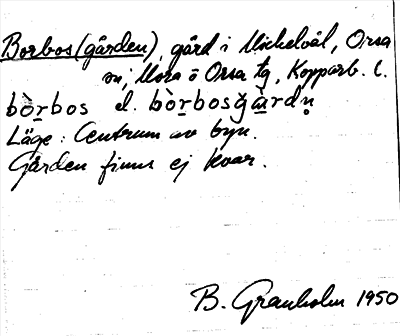 Borbos (gården), gård i Mickelvål, Orsa
sn, Mora o Orsa tg, Kopparb. l.
bòr̲bos el. bòr̲bosǧa̲rdn̥
Läge: Centrum av byn.
Gården finns ej kvar.
B. Granholm 1950